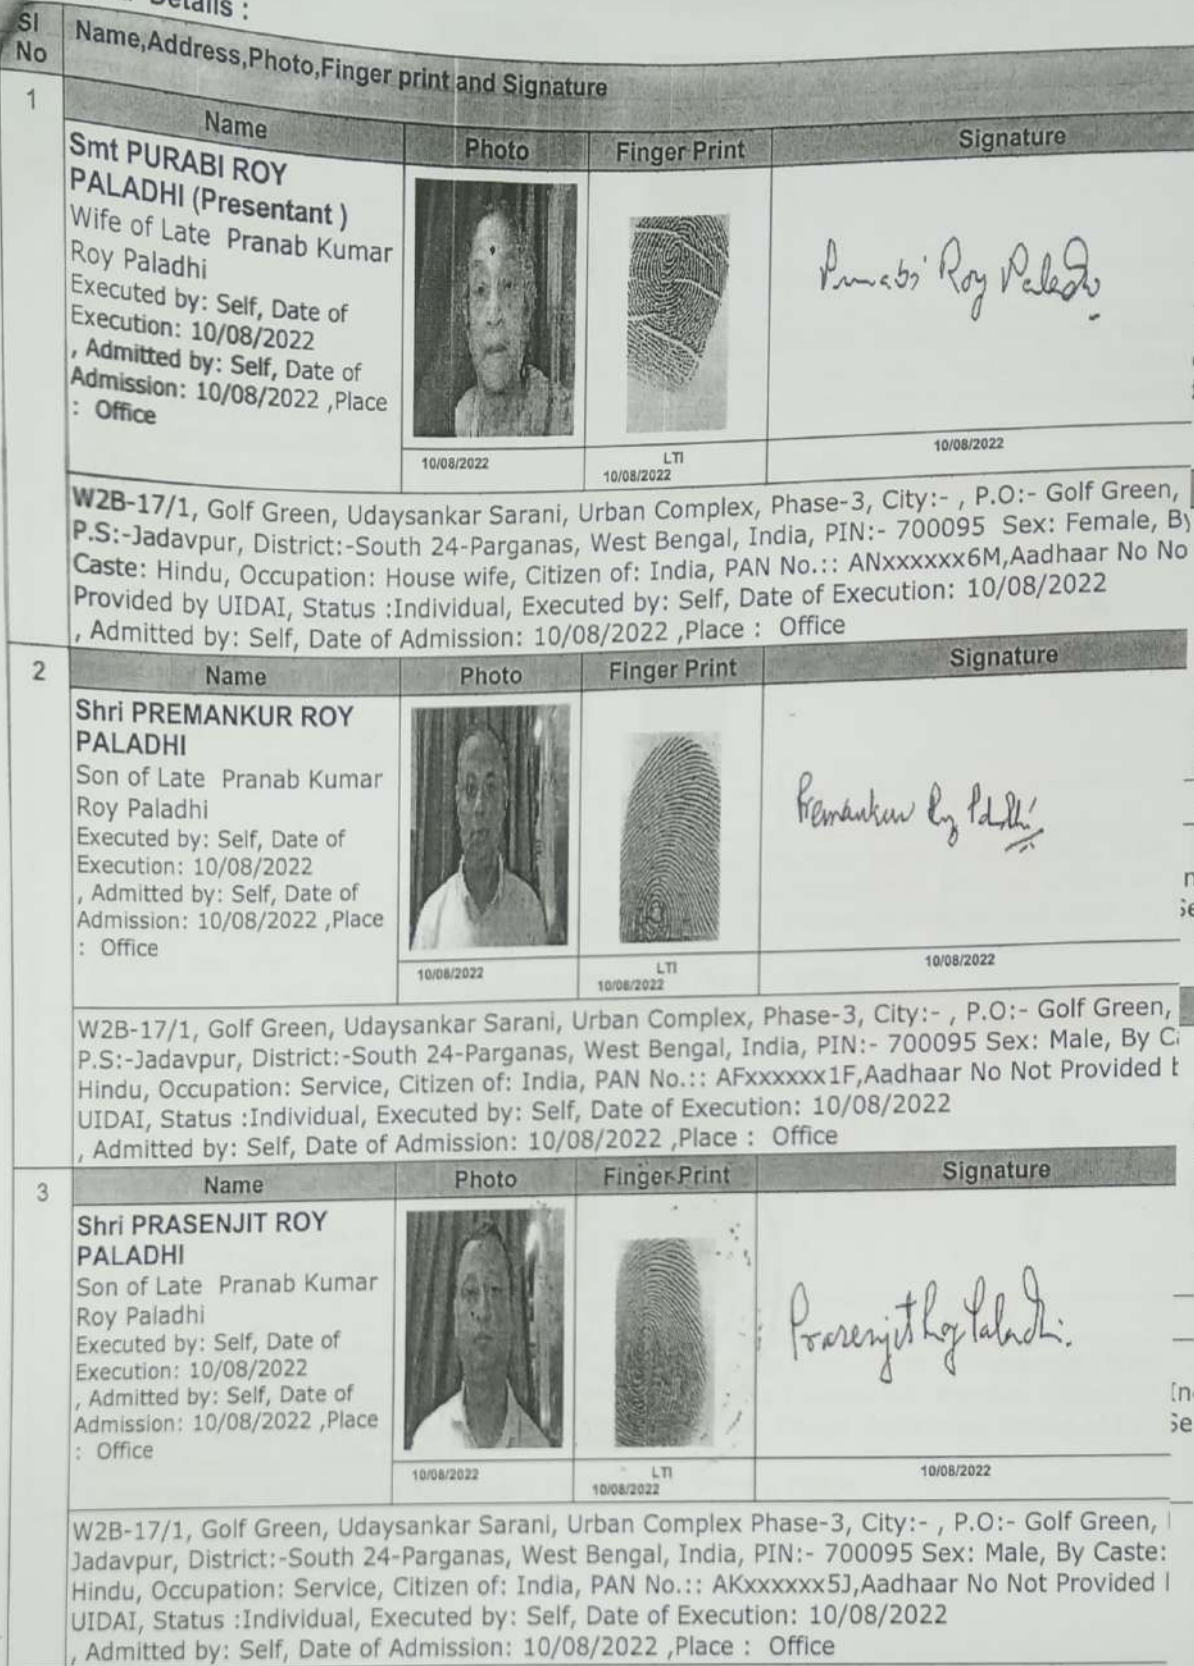 Details :
Sl No
Name,Address,Photo,Finger print and Signature
1
Name
Photo
Finger Print
Signature
Smt PURABI ROY
PALADHI (Presentant )
Wife of Late Pranab Kumar
Roy Paladhi
Executed by: Self, Date of
Execution: 10/08/2022
, Admitted by: Self, Date of
Admission: 10/08/2022 ,Place
: Office
Purabi Roy Paladhi
10/08/2022
LTI
10/08/2022
10/08/2022
W2B-17/1, Golf Green, Udaysankar Sarani, Urban Complex, Phase-3, City:- , P.O:- Golf Green,
P.S:-Jadavpur, District:-South 24-Parganas, West Bengal, India, PIN:- 700095 Sex: Female, By
Caste: Hindu, Occupation: House wife, Citizen of: India, PAN No.:: ANxxxxxx6M,Aadhaar No No
Provided by UIDAI, Status :Individual, Executed by: Self, Date of Execution: 10/08/2022
, Admitted by: Self, Date of Admission: 10/08/2022 ,Place : Office
2
Name
Photo
Finger Print
Signature
Shri PREMANKUR ROY
PALADHI
Son of Late Pranab Kumar
Roy Paladhi
Executed by: Self, Date of
Execution: 10/08/2022
, Admitted by: Self, Date of
Admission: 10/08/2022 ,Place
: Office
Premankur Roy Paladhi
10/08/2022
LTI
10/08/2022
10/08/2022
W2B-17/1, Golf Green, Udaysankar Sarani, Urban Complex, Phase-3, City:- , P.O:- Golf Green,
P.S:-Jadavpur, District:-South 24-Parganas, West Bengal, India, PIN:- 700095 Sex: Male, By Ca
Hindu, Occupation: Service, Citizen of: India, PAN No.:: AFxxxxxx1F,Aadhaar No Not Provided b
UIDAI, Status :Individual, Executed by: Self, Date of Execution: 10/08/2022
, Admitted by: Self, Date of Admission: 10/08/2022 ,Place : Office
3
Name
Photo
Finger Print
Signature
Shri PRASENJIT ROY
PALADHI
Son of Late Pranab Kumar
Roy Paladhi
Executed by: Self, Date of
Execution: 10/08/2022
, Admitted by: Self, Date of
Admission: 10/08/2022 ,Place
: Office
Prasenjit Roy Paladhi.
10/08/2022
LTI
10/08/2022
10/08/2022
W2B-17/1, Golf Green, Udaysankar Sarani, Urban Complex Phase-3, City:- , P.O:- Golf Green,
Jadavpur, District:-South 24-Parganas, West Bengal, India, PIN:- 700095 Sex: Male, By Caste:
Hindu, Occupation: Service, Citizen of: India, PAN No.:: AKxxxxxx5J,Aadhaar No Not Provided
UIDAI, Status :Individual, Executed by: Self, Date of Execution: 10/08/2022
, Admitted by: Self, Date of Admission: 10/08/2022 ,Place : Office